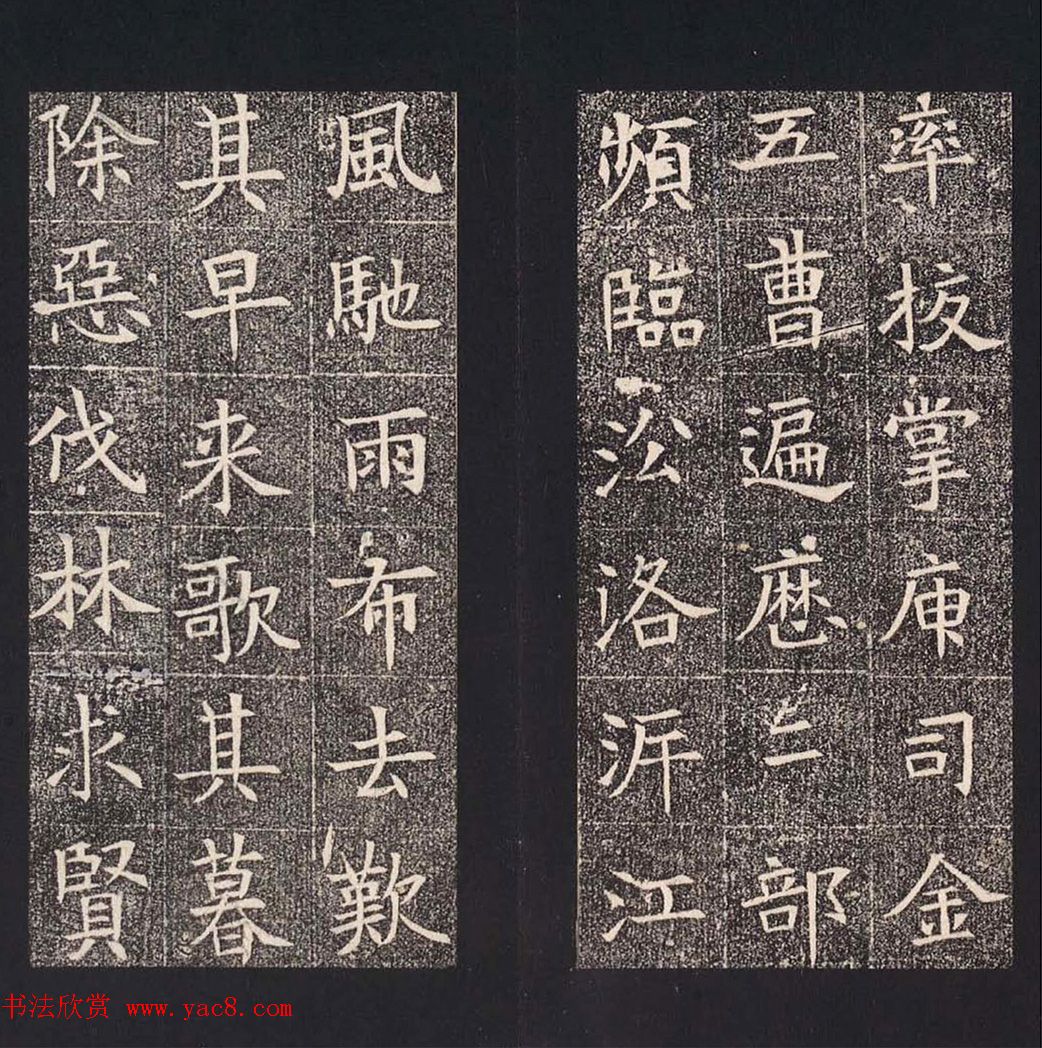 率㧞掌庾司金
五曹遍厯三部
頻臨沇洛泝江
風馳雨布去歎
其早来歌其暮
除惡伐林求賢
书法欣赏 www.yac8.com